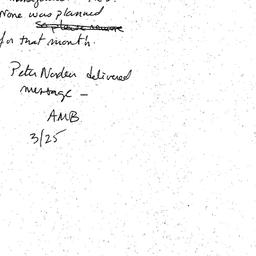 None was planned
for that month.
Peter Norden delivered
message —
AMB
3/25